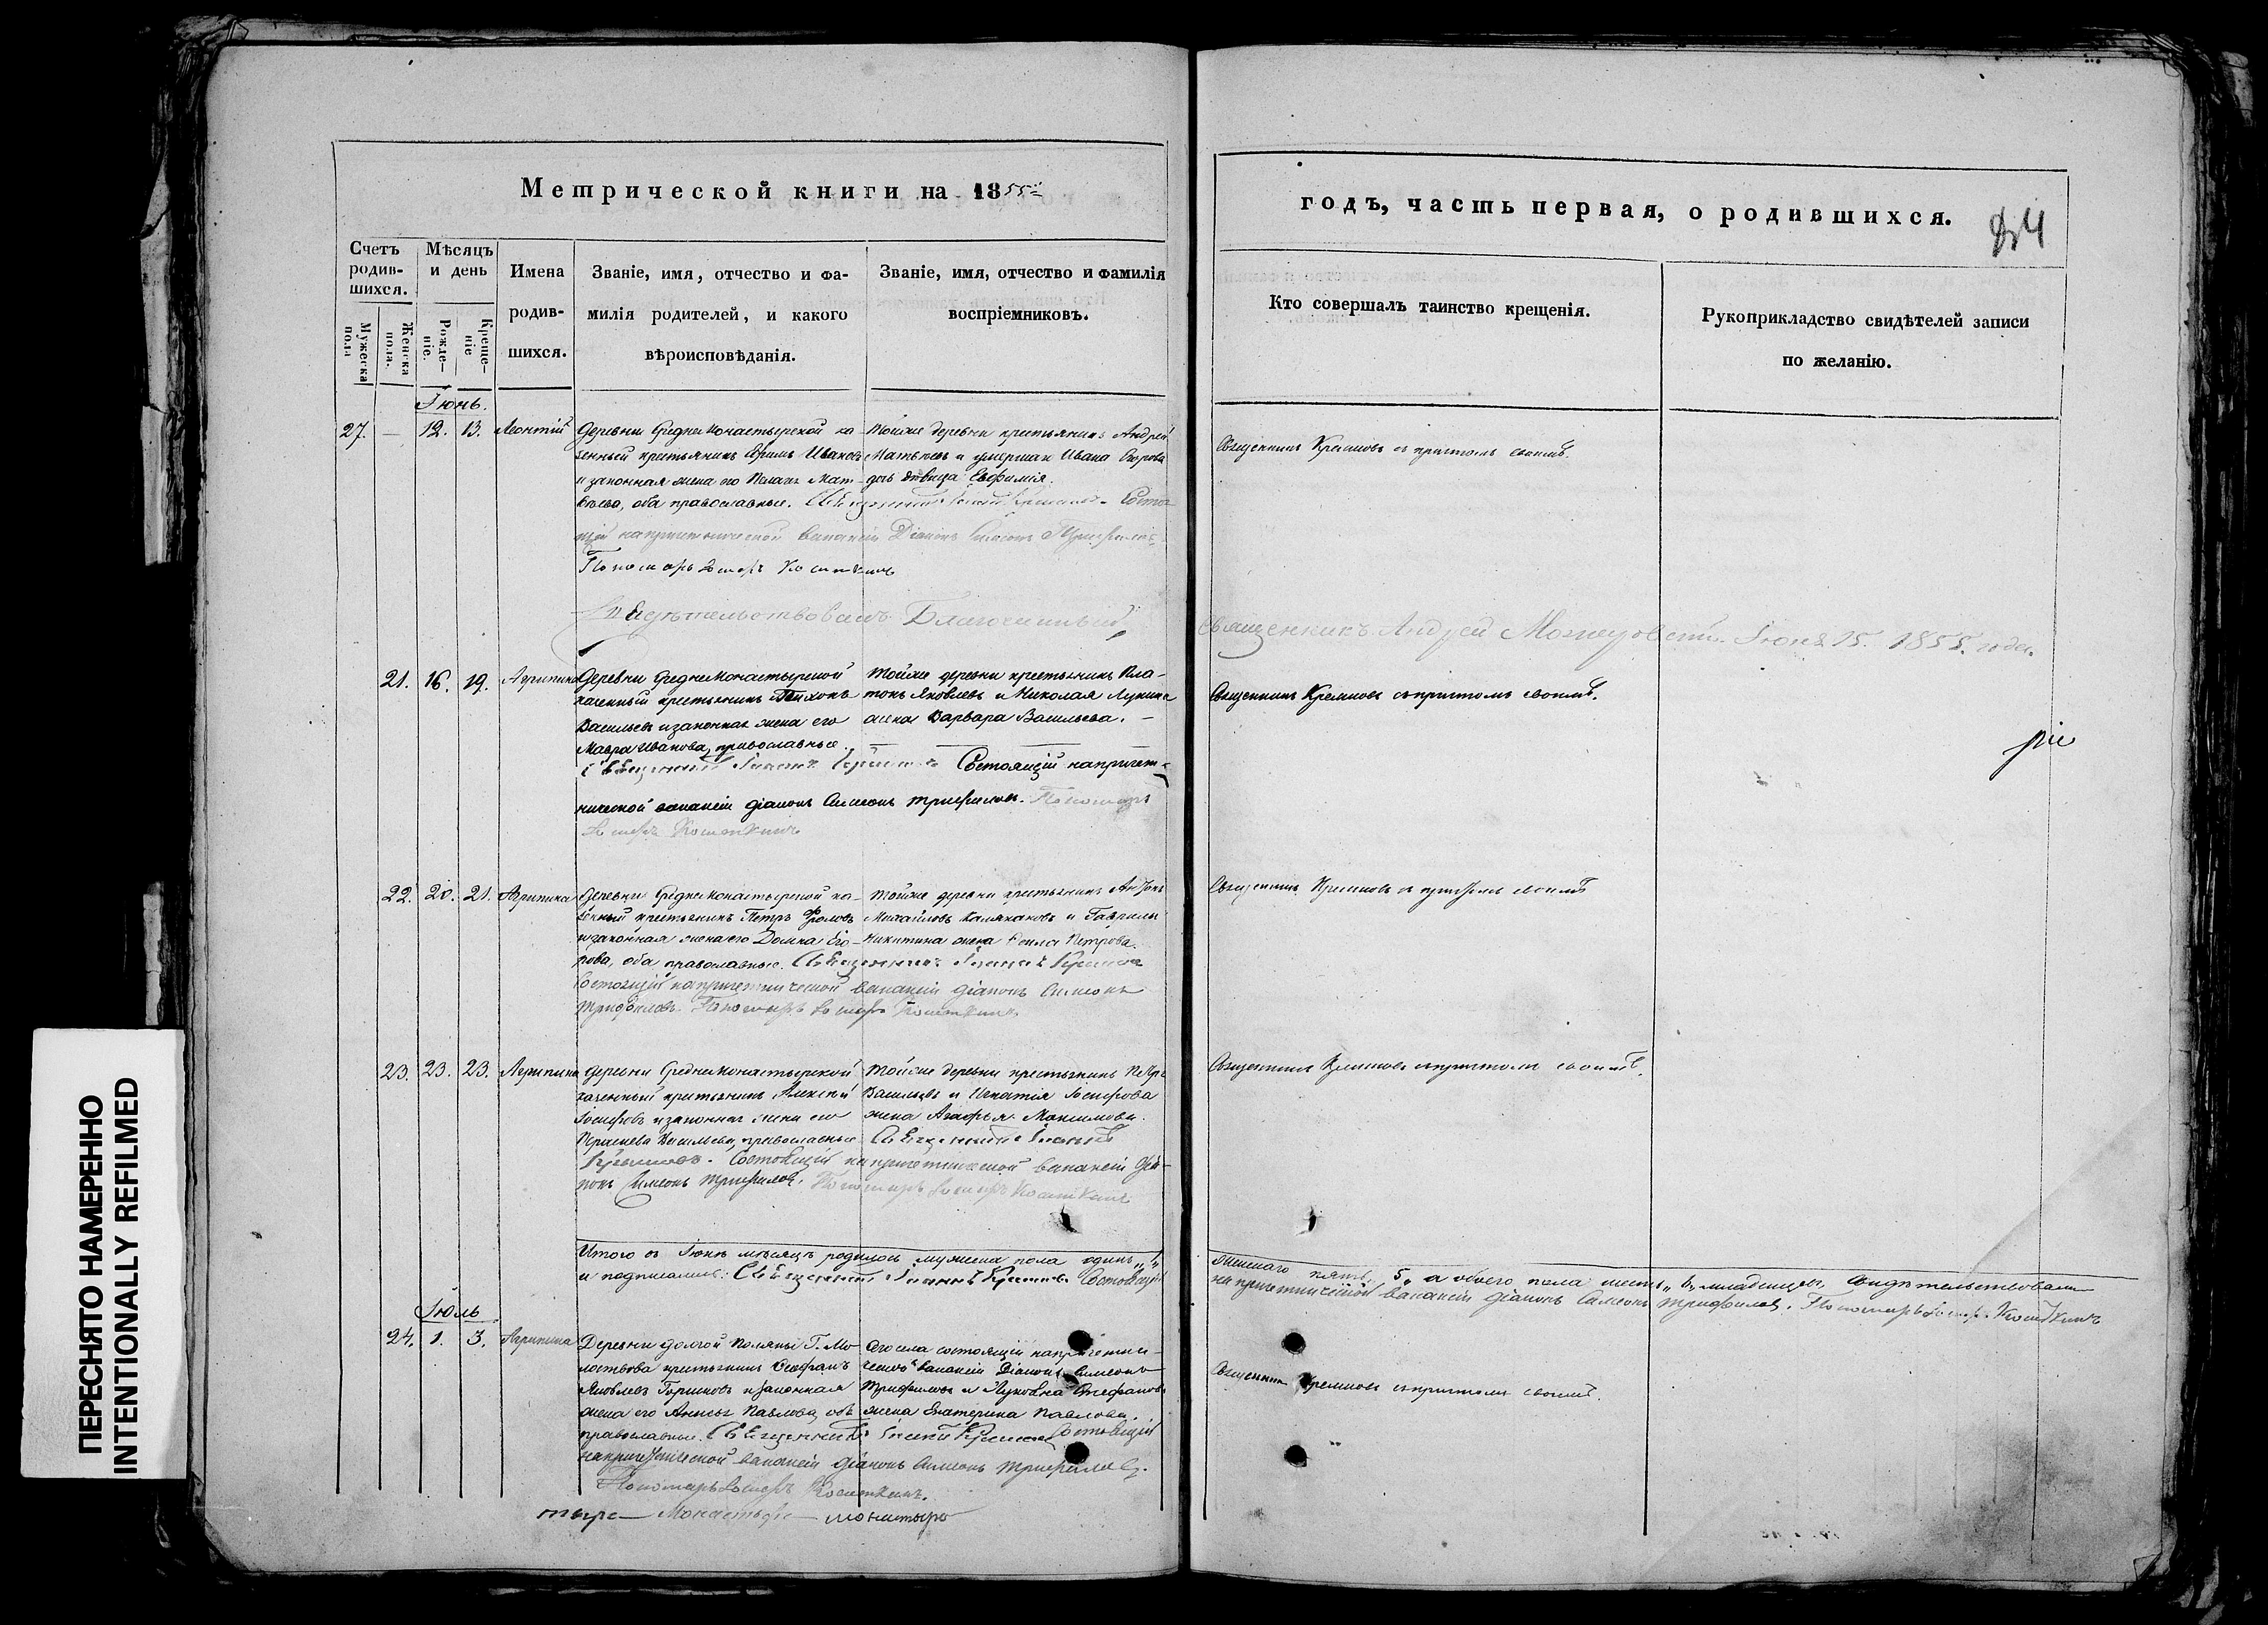 Метрической книги на 1855й
годъ, часть первая, о родившихся.
24
Счетъ родив-шихся.
Мужеска пола
Женска пола.
Мѣсяцъ и день
Рожде-ніе.
Креще-ніе
Имена
родив-
шихся.
Званіе, имя, отчество и фа-
милія родителей, и какого
вѣроисповѣданія.
Званіе, имя, отчество и фамилія
воспріемниковъ.
Кто совершалъ таинство крещенія.
Рукоприкладство свидѣтелей записи
по желанію.
Іюнь.
27. — 12. 13. Леонтій
Деревни Среднемонастырской ка-
зенный крестьянинъ Ефимъ Ивановъ
и законная жена его Мат-
вѣева, оба православные. Священникъ Іоаннъ Кремковъ Состоя-
щій на причетнической вакансіи Діаконъ Симеонъ Трифиловъ
Пономарь Іосифъ
Тойже деревни крестьянинъ Андрей
Матвѣевъ и умершаго Ивана
дочь дѣвица Евфимія.
Священникъ Кремковъ съ причтомъ своимъ.
Свидѣтельствовалъ Благочинный,
Священникъ Андрей Іюня 15. 1855. года.
21. 16. 19. Агрипина
Деревни Среднемонастырской
казенный крестьянинъ Тихонъ
Васильевъ и законная жена его
Мавра Иванова, православные.
Священникъ Іоаннъ Кремковъ Состоящій на причет-
нической вакансіи діаконъ Симеонъ Трифиловъ. Пономарь
Іосифъ
Тойже деревни крестьянинъ Пла-
тонъ Яковлевъ и Николая Лукина
жена Варвара Васильева. —
Священникъ Кремковъ съ причтомъ своимъ.
22. 20. 21. Агрипина
Деревни Среднемонастырской ка-
зенный крестьянинъ Петръ Фроловъ
и законная жена его Домна Его-
рова, оба православные. Священникъ Іоаннъ Кремковъ
Состоящій на причетнической вакансіи діаконъ Симеонъ
Трифиловъ. Пономарь Іосифъ
Тойже деревни крестьянинъ Антонъ
Михайловъ и Гаврилы
Никитина жена Петрова.
Священникъ Кремковъ съ причтомъ своимъ
23. 23. 23. Агрипина
Деревни Среднемонастырской
казенный крестьянинъ Алексѣй
Іосифовъ и законная жена его
Васильева, православные. Священникъ Іоаннъ
Кремковъ. Состоящій на причетнической вакансіи діа-
конъ Симеонъ Трифиловъ. Пономарь Іосифъ
Тойже деревни крестьянинъ Петръ
Васильевъ и Игнатія Іосифова
жена Агафья Максимова.
Священникъ Кремковъ съ причтомъ своимъ.
Итого въ Іюнѣ мѣсяцѣ родилось мужеска пола одинъ „1„
женскаго пять, 5„ а обоего пола шесть „6„ младенцевъ. Свидѣтельствовали
и подписались: Священникъ Іоаннъ Кремковъ Состоящій
на причетнической вакансіи діаконъ Симеонъ Трифиловъ. Пономарь Іосифъ
Іюль
24. 1. 3. Агрипина
Деревни Долгой Поляны Г.
крестьянинъ
Яковлевъ и законная
жена его Анисья Павлова, оба
православные. Священникъ Іоаннъ Кремковъ Состоящій
на причетнической вакансіи діаконъ Симеонъ Трифиловъ.
Пономарь Іосифъ
села состоящій на причетни-
ческой вакансіи Діаконъ Симеонъ
Трифиловъ и
жена Екатерина Павлова.
Священникъ Кремковъ съ причтомъ своимъ.
тыре— Монастыре— монастыре
ПЕРЕСНЯТО НАМЕРЕННО
INTENTIONALLY REFILMED